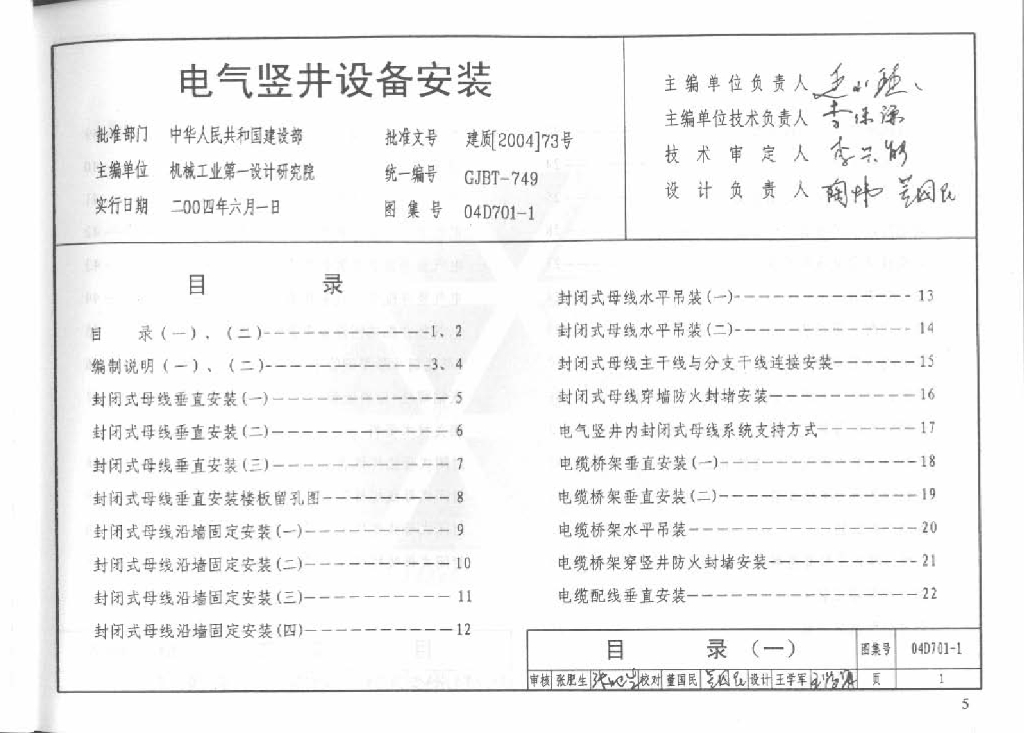 电气竖井设备安装
批准部门 中华人民共和国建设部 批准文号 建质[2004]73号
主编单位 机械工业第一设计研究院 统一编号 GJBT-749
实行日期 二00四年六月一日 图集号 04D701-1
主编单位负责人
主编单位技术负责人
技术审定人
设计负责人
目 录
目 录(一)、(二)-------------1、2
编制说明(一)、(二)-------------3、4
封闭式母线垂直安装(一)-------------5
封闭式母线垂直安装(二)-------------6
封闭式母线垂直安装(三)-------------7
封闭式母线垂直安装楼板留孔图---------8
封闭式母线沿墙固定安装(一)----------9
封闭式母线沿墙固定安装(二)----------10
封闭式母线沿墙固定安装(三)----------11
封闭式母线沿墙固定安装(四)----------12
封闭式母线水平吊装(一)-------------13
封闭式母线水平吊装(二)-------------14
封闭式母线主干线与分支干线连接安装------15
封闭式母线穿墙防火封堵安装----------16
电气竖井内封闭式母线系统支持方式-------17
电缆桥架垂直安装(一)--------------18
电缆桥架垂直安装(二)--------------19
电缆桥架水平吊装----------------20
电缆桥架穿竖井防火封堵安装----------21
电缆配线垂直安装----------------22
目 录(一) 图集号 04D701-1
审核 张肥生 校对 董国民 设计 王学军 页 1
5